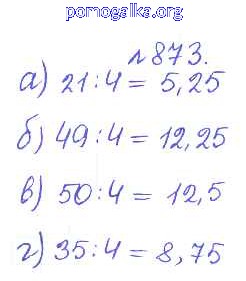 pomogalka.org
№873.
а) 21:4 = 5,25
б) 49:4 = 12,25
в) 50:4 = 12,5
г) 35:4 = 8,75